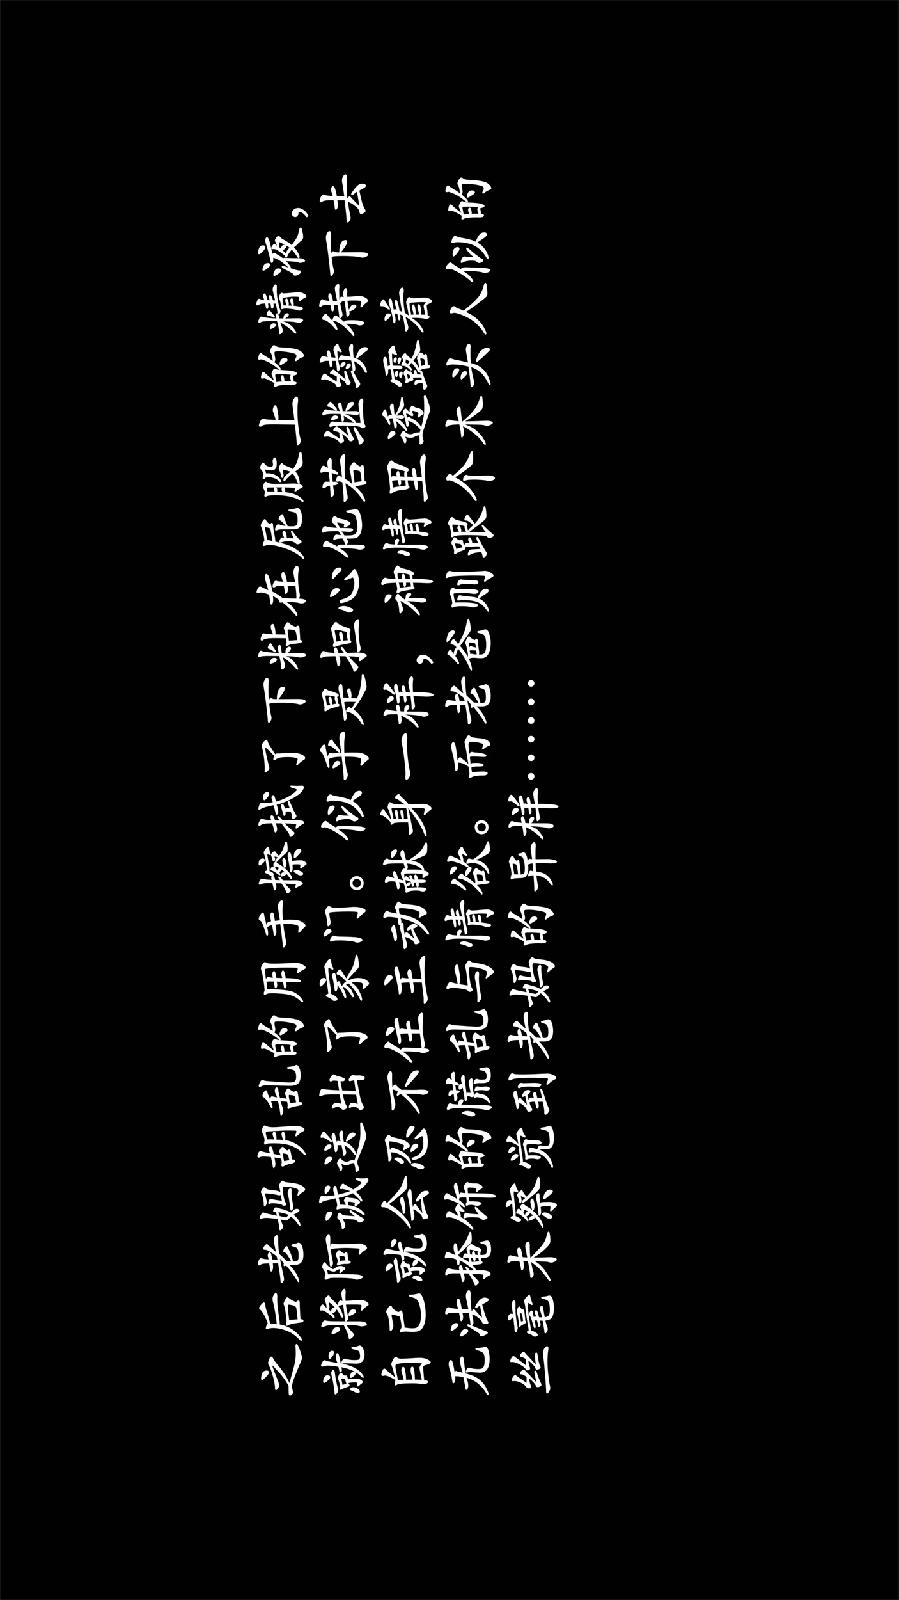 之后老妈胡乱的用手擦拭了下粘在屁股上的精液，
就将阿诚送出了家门。似乎是担心他若继续待下去
自己就会忍不住主动献身一样，神情里透露着
无法掩饰的慌乱与情欲。而老爸则跟个木头人似的
丝毫未察觉到老妈的异样……